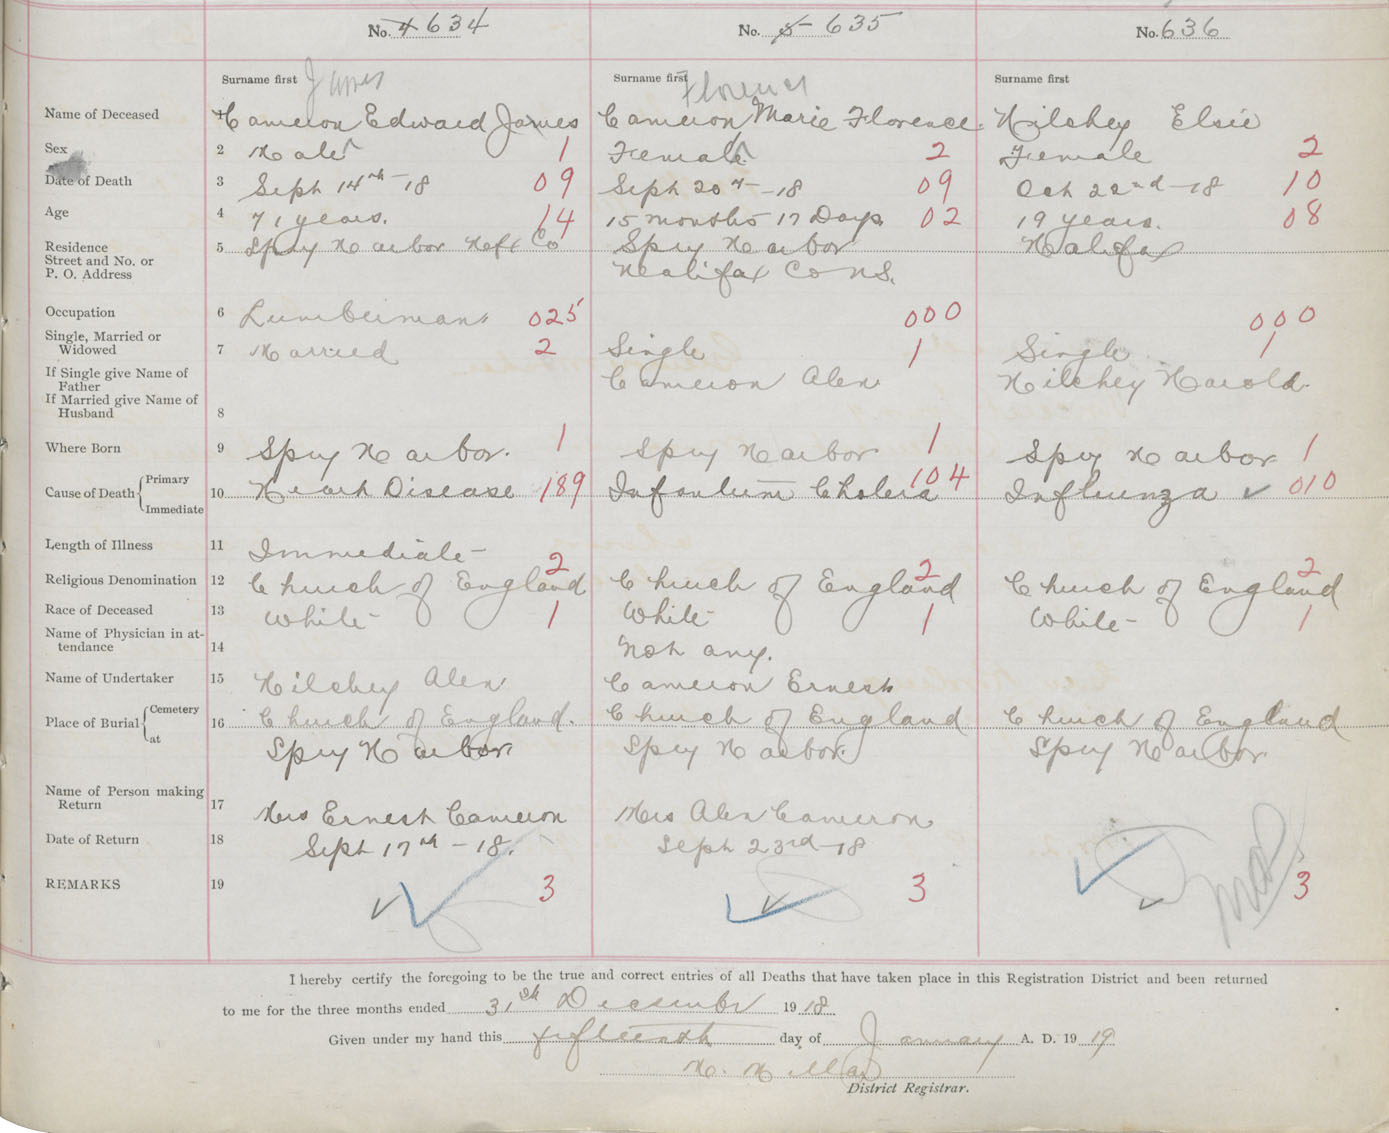 No. 4 634
No. 5 635
No. 636
Surname first James
Surname first Florence
Surname first
Name of Deceased 1 Cameron Edward James
Cameron Marie Florence
Hilchey Elsie
Sex 2 Male 1
Female 2
Female 2
Date of Death 3 Sept 14th-18 09
Sept 20th-18 09
Oct 22nd-18 10
Age 4 71 years. 14
15 months 17 Days 02
19 years. 08
Residence
Street and No. or
P. O. Address
5 Spry Harbor Hfx Co
Spry Harbor
Halifax Co N.S.
Halifax
Occupation 6 Lumberman 025
000
000
Single, Married or
Widowed
7 Married 2
Single 1
Single 1
If Single give Name of
Father
Cameron Alex
Hilchey Harold.
If Married give Name of
Husband
8
Where Born 9 Spry Harbor. 1
Spry Harbor 1
Spry Harbor 1
Cause of Death Primary
Immediate
10 Heart Disease 189
Infantum Cholera 104
Influenza ✓ 010
Length of Illness 11 Immediate-
Religious Denomination 12 Church of England 2
Church of England 2
Church of England 2
Race of Deceased 13 White- 1
White- 1
White- 1
Name of Physician in at-
tendance
14
Not any.
Name of Undertaker 15 Hilchey Alex
Cameron Ernest
Place of Burial Cemetery
at
16 Church of England.
Spry Harbor
Church of England
Spry Harbor
Church of England
Spry Harbor
Name of Person making
Return
17 Mrs Ernest Cameron
Mrs Alex Cameron
Date of Return 18 Sept 17th-18.
Sept 23rd-18
REMARKS 19 3
3
3
I hereby certify the foregoing to be the true and correct entries of all Deaths that have taken place in this Registration District and been returned
to me for the three months ended 31st December 1918
Given under my hand this fifteenth day of January A. D. 1919
District Registrar.